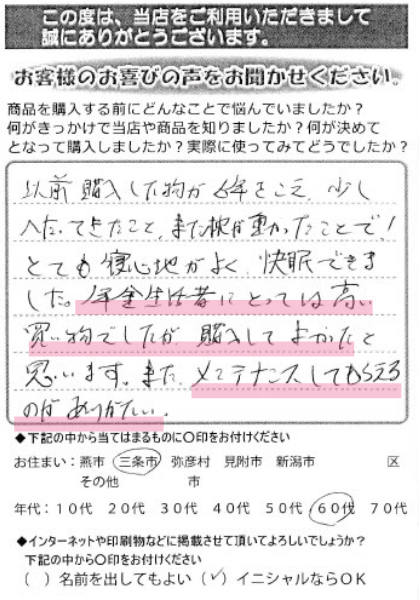 この度は、当店をご利用いただきまして
誠にありがとうございます。
お客様のお喜びの声をお聞かせください。
商品を購入する前にどんなことで悩んでいましたか？
何がきっかけで当店や商品を知りましたか？何が決めて
となって購入しましたか？実際に使ってみてどうでしたか？
以前購入した物が6年をこえ、少し
へたってきたこと、また枕が重かったことで！
とても寝心地がよく、快眠できま
した。年金生活者にとっては高い
買い物でしたが、購入してよかったと
思います。また、メンテナンスしてもらえる
のがありがたい。
◆下記の中から当てはまるものに○印をお付けください
お住まい：燕市 三条市 弥彦村 見附市 新潟市 区
その他 市
年代：10代 20代 30代 40代 50代 60代 70代
◆インターネットや印刷物などに掲載させて頂いてよろしいでしょうか？
下記の中から○印をお付けください
（ ）名前を出してもよい（✓）イニシャルならＯＫ